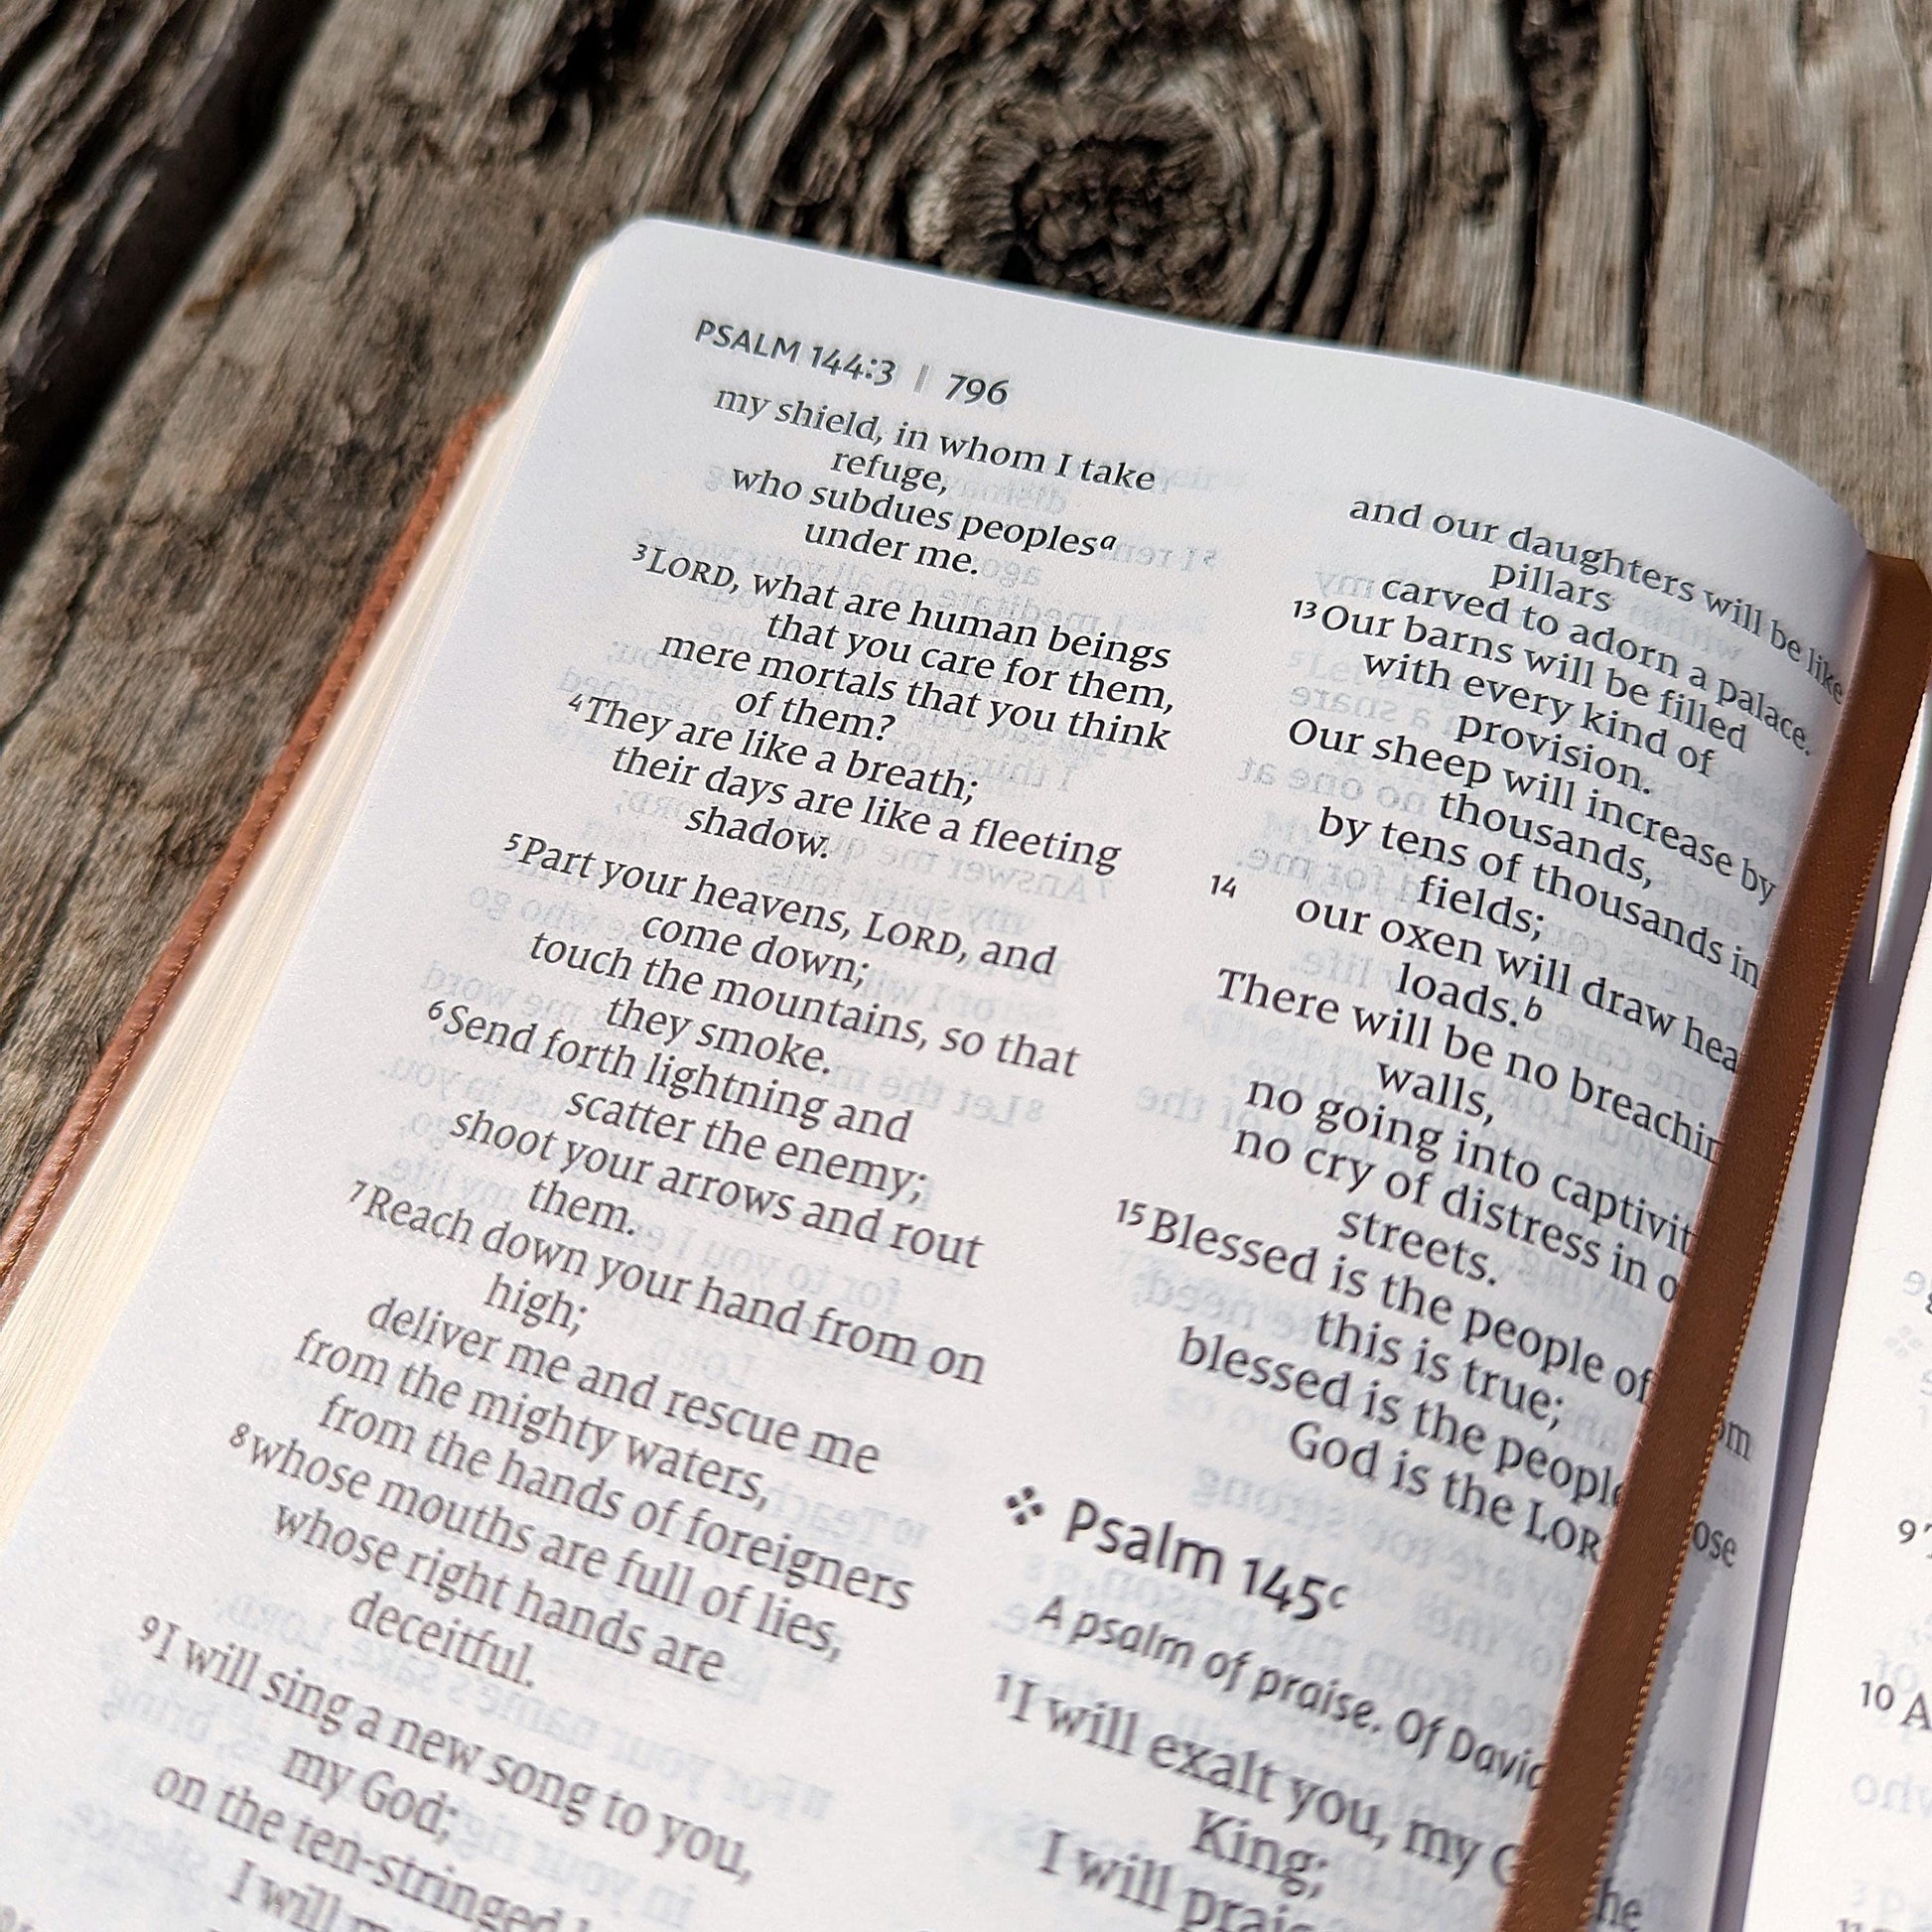 PSALM 144:3 | 796
my shield, in whom I take
refuge,
who subdues peoplesᵃ
under me.
³LORD, what are human beings
that you care for them,
mere mortals that you think
of them?
⁴They are like a breath;
their days are like a fleeting
shadow.
⁵Part your heavens, LORD, and
come down;
touch the mountains, so that
they smoke.
⁶Send forth lightning and
scatter the enemy;
shoot your arrows and rout
them.
⁷Reach down your hand from on
high;
deliver me and rescue me
from the mighty waters,
from the hands of foreigners
⁸whose mouths are full of lies,
whose right hands are
deceitful.
⁹I will sing a new song to you,
my God;
on the ten-stringed
I will
and our daughters will be like
pillars
carved to adorn a palace.
¹³Our barns will be filled
with every kind of
provision.
Our sheep will increase by
thousands,
by tens of thousands in
fields;
¹⁴ our oxen will draw
loads.ᵇ
There will be no
walls,
no going into
no cry of distress in
streets.
¹⁵Blessed is the people of
this is true;
blessed is the
God is the
Psalm 145ᶜ
A psalm of praise. Of David
¹I will exalt you, my
King;
I will
9
10